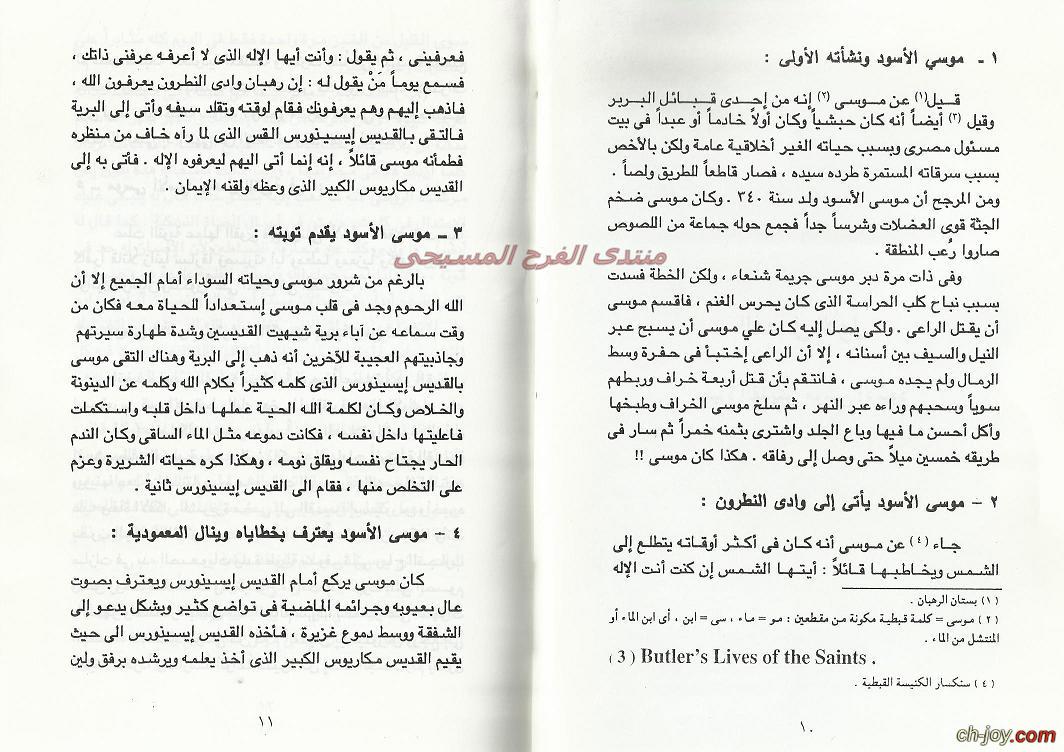 ١ ـ موسي الأسود ونشأته الأولى :
قـيـل(١) عن مـوسـى (٢) إنه من إحـدى قـبـائل البـربر
وقيل (٣) أيضاً أنه كان حبشياً وكان أولاً خادماً أو عبداً فى بيت
مسئول مصرى وبسبب حياته الغير أخلاقية عامة ولكن بالأخص
بسبب سرقاته المستمرة طرده سيده ، فصار قاطعاً للطريق ولصاً .
ومن المرجح أن موسى الأسود ولد سنة ٣٤٠ . وكان موسى ضخم
الجثة قوى العضلات وشرساً جداً فجمع حوله جماعة من اللصوص
صاروا رُعب المنطقة .
وفى ذات مرة دبر موسى جريمة شنعاء ، ولكن الخطة فسدت
بسبب نباح كلب الحراسة الذى كان يحرس الغنم ، فاقسم موسى
أن يقتل الراعى . ولكى يصل إليه كان علي موسى أن يسبح عبر
النيل والسيف بين أسنانه ، إلا أن الراعى إختبأ فى حفرة وسط
الرمال ولم يجده موسى ، فانتقم بأن قتل أربعة خراف وربطهم
سوياً وسحبهم وراءه عبر النهر ، ثم سلخ موسى الخراف وطبخها
وأكل أحسن ما فيها وباع الجلد واشترى بثمنه خمراً ثم سار فى
طريقه خمسين ميلاً حتى وصل إلى رفاقه . هكذا كان موسى !!
٢ – موسى الأسود يأتى إلى وادى النطرون :
جـاء (٤) عن موسـى أنه كـان فى أكـثـر أوقـاتـه يتطلع إلى
الشمس ويخاطبها قائلاً : أيتها الشمس إن كنت أنت الإله
(١) بستان الرهبان .
(٢) موسى = كلمة قبطية مكونة من مقطعين : مو = ماء ، سى = ابن ، أى ابن الماء أو
المنتشل من الماء .
(3) Butler's Lives of the Saints .
(٤) سنكسار الكنيسة القبطية .
١٠
فعرفينى ، ثم يقول : وأنت أيها الإله الذى لا أعرفه عرفنى ذاتك ،
فسمع يوماً مَنْ يقول له : إن رهبان وادى النطرون يعرفون الله ،
فاذهب إليهم وهم يعرفونك فقام لوقته وتقلد سيفه وأتى إلى البرية
فالتقى بالقديس إيسينورس القس الذى لما رآه خاف من منظره
فطمأنه موسى قائلاً ، إنه إنما أتى اليهم ليعرفوه الإله . فأتى به إلى
القديس مكاريوس الكبير الذى وعظه ولقنه الإيمان .
٣ ـ موسى الأسود يقدم توبته :
بالرغم من شرور موسى وحياته السوداء أمام الجميع إلا أن
الله الرحوم وجد فى قلب موسى إستعداداً للحياة معه فكان من
وقت سماعه عن آباء برية شيهيت القديسين وشدة طهارة سيرتهم
وجاذبيتهم العجيبة للآخرين أنه ذهب إلى البرية وهناك التقى موسى
بالقديس إيسينورس الذى كلمه كثيراً بكلام الله وكلمه عن الدينونة
والخلاص وكان لكلمة الله الحية عملها داخل قلبه واستكملت
فاعليتها داخل نفسه ، فكانت دموعه مثل الماء الساقى وكان الندم
الحار يجتاح نفسه ويقلق نومه ، وهكذا كره حياته الشريرة وعزم
على التخلص منها ، فقام الى القديس إيسينورس ثانية .
٤ – موسى الأسود يعترف بخطاياه وينال المعمودية :
كان موسى يركع أمام القديس إيسينورس ويعترف بصوت
عال بعيوبه وجرائمه الماضية فى تواضع كثير وبشكل يدعو إلى
الشفقة ووسط دموع غزيرة ، فأخذه القديس إيسينورس الى حيث
يقيم القديس مكاريوس الكبير الذى أخذ يعلمه ويرشده برفق ولين
١١
منتدى الفرح المسيحى
ch-joy.com